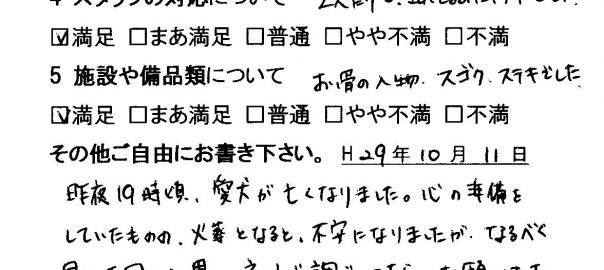 ☑満足 □まあ満足 □普通 □やや不満 □不満
5 施設や備品類について お骨の入物、スゴク、ステキでした
☑満足 □まあ満足 □普通 □やや不満 □不満
その他ご自由にお書き下さい。 H29年10月11日
昨夜19時頃、愛犬が亡くなりました。心の準備を
していたものの、火葬となると、不安になりましたが、なるべく